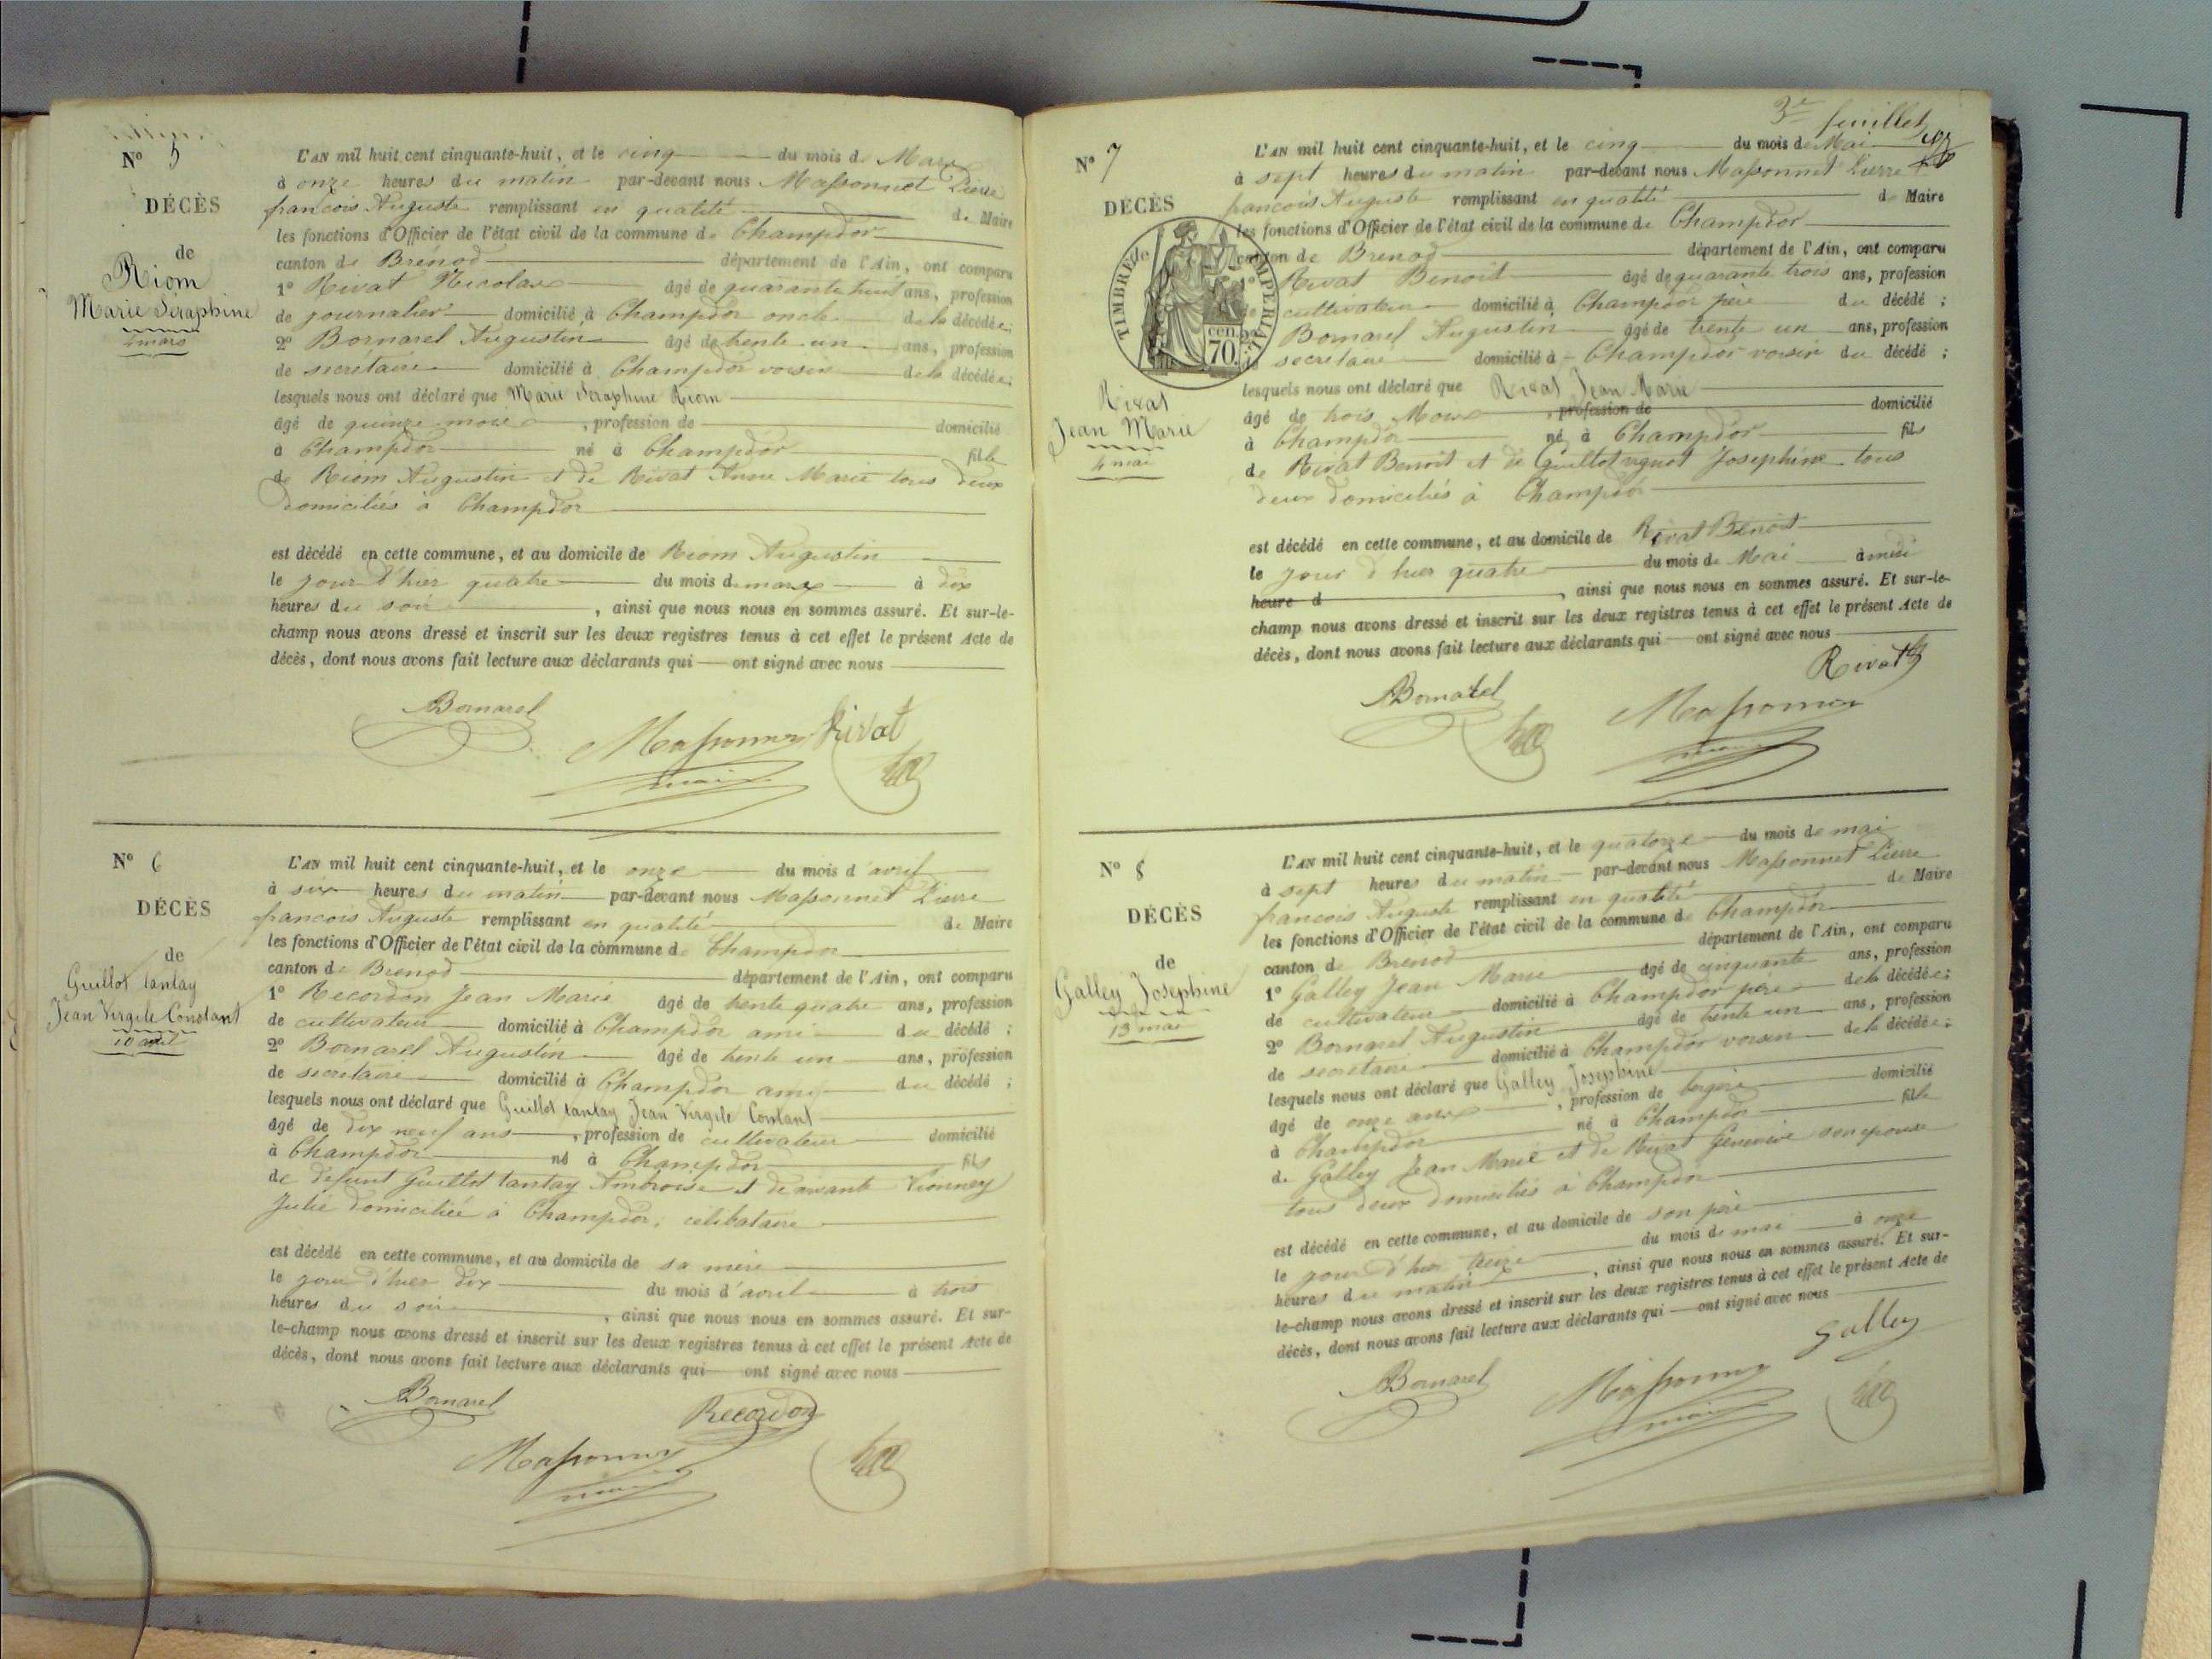 N° 5
DÉCÈS
de
Riom
Marie Séraphine
4 mars
L'AN mil huit cent cinquante-huit, et le cinq du mois de Mars
à onze heures du matin par-devant nous Massonnet Pierre
françois Auguste remplissant en qualité de Maire
les fonctions d'Officier de l'état civil de la commune de Champdor
canton de Brenod département de l'Ain, ont comparu
1° Rivat Nicolas âgé de quarante huit ans, profession
de journalier domicilié à Champdor oncle de la décédée;
2° Bornarel Augustin âgé de trente un ans, profession
de secrétaire domicilié à Champdor voisin de la décédée;
lesquels nous ont déclaré que Marie Séraphine Riom
âgé de quinze mois, profession de domicilié
à Champdor né à Champdor fille
de Riom Augustin et de Rivat Anne Marie tous deux
domiciliés à Champdor
est décédé en cette commune, et au domicile de Riom Augustin
le jour d'hier quatre du mois de mars à dix
heures du soir, ainsi que nous nous en sommes assuré. Et sur-le-
champ nous avons dressé et inscrit sur les deux registres tenus à cet effet le présent Acte de
décès, dont nous avons fait lecture aux déclarants qui ont signé avec nous
ABornarel
Massonnet Rivat
maire
N° 6
DÉCÈS
de
Guillot tantay
Jean Virgile Constant
10 avril
L'AN mil huit cent cinquante-huit, et le onze du mois d'avril
à six heures du matin par-devant nous Massonnet Pierre
françois Auguste remplissant en qualité de Maire
les fonctions d'Officier de l'état civil de la commune de Champdor
canton de Brenod département de l'Ain, ont comparu
1° Recordon Jean Marie âgé de trente quatre ans, profession
de cultivateur domicilié à Champdor ami du décédé;
2° Bornarel Augustin âgé de trente un ans, profession
de secrétaire domicilié à Champdor ami du décédé;
lesquels nous ont déclaré que Guillot tantay Jean Virgile Constant
âgé de dix neuf ans, profession de cultivateur domicilié
à Champdor né à Champdor fils
de défunt Guillot tantay Ambroise et de vivante Vionney
Julie domiciliée à Champdor; célibataire
est décédé en cette commune, et au domicile de sa mère
le jour d'hier dix du mois d'avril à trois
heures du soir, ainsi que nous nous en sommes assuré. Et sur-
le-champ nous avons dressé et inscrit sur les deux registres tenus à cet effet le présent Acte de
décès, dont nous avons fait lecture aux déclarants qui ont signé avec nous
ABornarel Recordon
Massonnet
maire
3e feuillet
N° 7
DÉCÈS
TIMBRE IMPERIAL
70 cen.
Rivat
Jean Marie
4 mai
L'AN mil huit cent cinquante-huit, et le cinq du mois de Mai
à sept heures du matin par-devant nous Massonnet Pierre
françois Auguste remplissant en qualité de Maire
les fonctions d'Officier de l'état civil de la commune de Champdor
canton de Brenod département de l'Ain, ont comparu
Rivat Benoit âgé de quarante trois ans, profession
cultivateur domicilié à Champdor père du décédé;
2° Bornarel Augustin âgé de trente un ans, profession
secrétaire domicilié à Champdor voisin du décédé;
lesquels nous ont déclaré que Rivat Jean Marie
âgé de trois Mois, profession de domicilié
à Champdor né à Champdor fils
de Rivat Benoit et de Guillot vignot Josephine tous
deux domiciliés à Champdor
est décédé en cette commune, et au domicile de Rivat Benoit
le jour d'hier quatre du mois de Mai à midi
heure d, ainsi que nous nous en sommes assuré. Et sur-le-
champ nous avons dressé et inscrit sur les deux registres tenus à cet effet le présent Acte de
décès, dont nous avons fait lecture aux déclarants qui ont signé avec nous
Rivat
ABornarel Massonnet
maire
N° 8
DÉCÈS
de
Galley Josephine
13 mai
L'AN mil huit cent cinquante-huit, et le quatorze du mois de mai
à sept heures du matin par-devant nous Massonnet Pierre
françois Auguste remplissant en qualité de Maire
les fonctions d'Officier de l'état civil de la commune de Champdor
canton de Brenod département de l'Ain, ont comparu
1° Galley Jean Marie âgé de cinquante ans, profession
de cultivateur domicilié à Champdor père de la décédée;
2° Bornarel Augustin âgé de trente un ans, profession
de secrétaire domicilié à Champdor voisin de la décédée;
lesquels nous ont déclaré que Galley Josephine
âgé de onze ans, profession de bergère domicilié
à Champdor né à Champdor fille
de Galley Jean Marie et de Rivat Geneviève son épouse
tous deux domiciliés à Champdor
est décédé en cette commune, et au domicile de son père
le jour d'hier treize du mois de mai à onze
heures du matin, ainsi que nous nous en sommes assuré. Et sur-
le-champ nous avons dressé et inscrit sur les deux registres tenus à cet effet le présent Acte de
décès, dont nous avons fait lecture aux déclarants qui ont signé avec nous
Galley
ABornarel Massonnet
maire